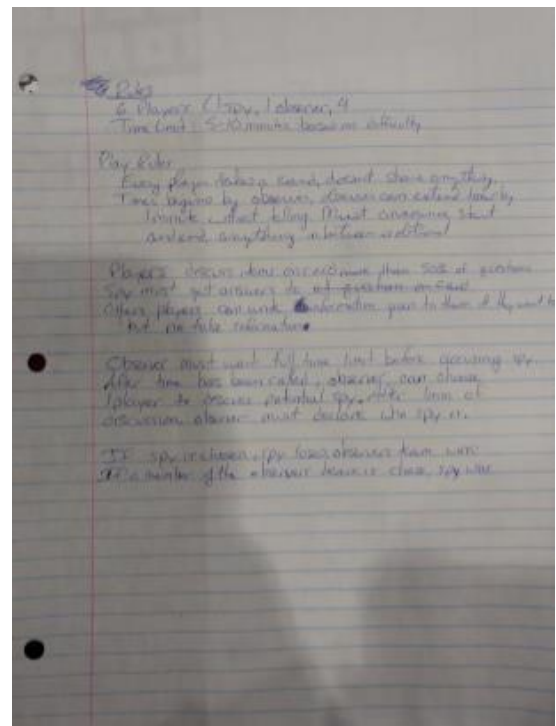 Rules
6 Players (1 spy, 1 observer, 4
Time Limit: 5-10 minutes based on difficulty
Play Rules
Every player takes a card, doesn't share anything.
Timer begins by observer, observer can extend time by
1 minute without telling. Must announce start
and end, anything in between optional
Players discuss items on card more than 50% of questions
Spy must get answers to of question on card
Others players can work information given to them if they want to
but no fake information
Observer must wait full time limit before accusing spy
After time has been called, observer can choose
1 player to discuss potential spy. After 1 min of
discussion observer must declare who spy is.
If spy is chosen, spy loses, observers team wins
If a member of the observer team is chose, spy wins